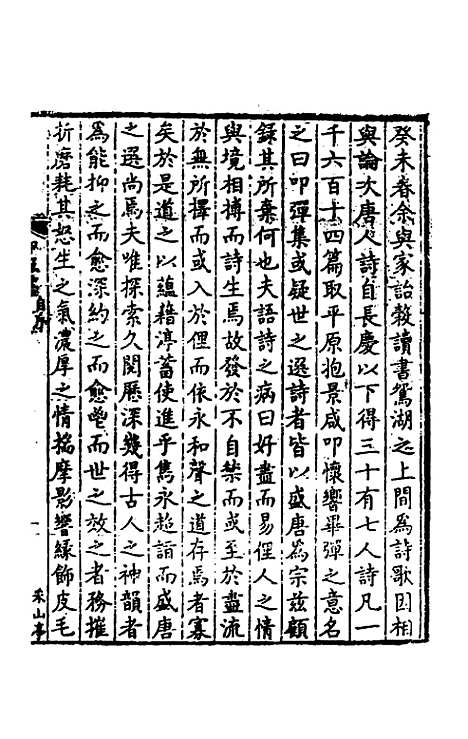 癸未春余與家詒穀讀書鴛湖之上間為詩歌因相
與論次唐人詩自長慶以下得三十有七人詩凡一
千六百十四篇取平原抱景咸叩懷響畢彈之意名
之曰叩彈集或疑世之選詩者皆以盛唐為宗茲顧
錄其所棄何也夫語詩之病曰好盡而易俚人之情
與境相摶而詩生焉故發於不自禁而或至於盡流
於無所擇而或入於俚而依永和聲之道存焉者寡
矣於是道之以蘊藉渟蓄使進乎雋永超詣而盛唐
之選尚焉夫唯探索久閱歷深幾得古人之神韻者
為能抑之而愈深約之而愈飽而世之效之者務摧
折磨耗其怒生之氣濃厚之情揣摩影響緣飾皮毛
自序
一
采山亭